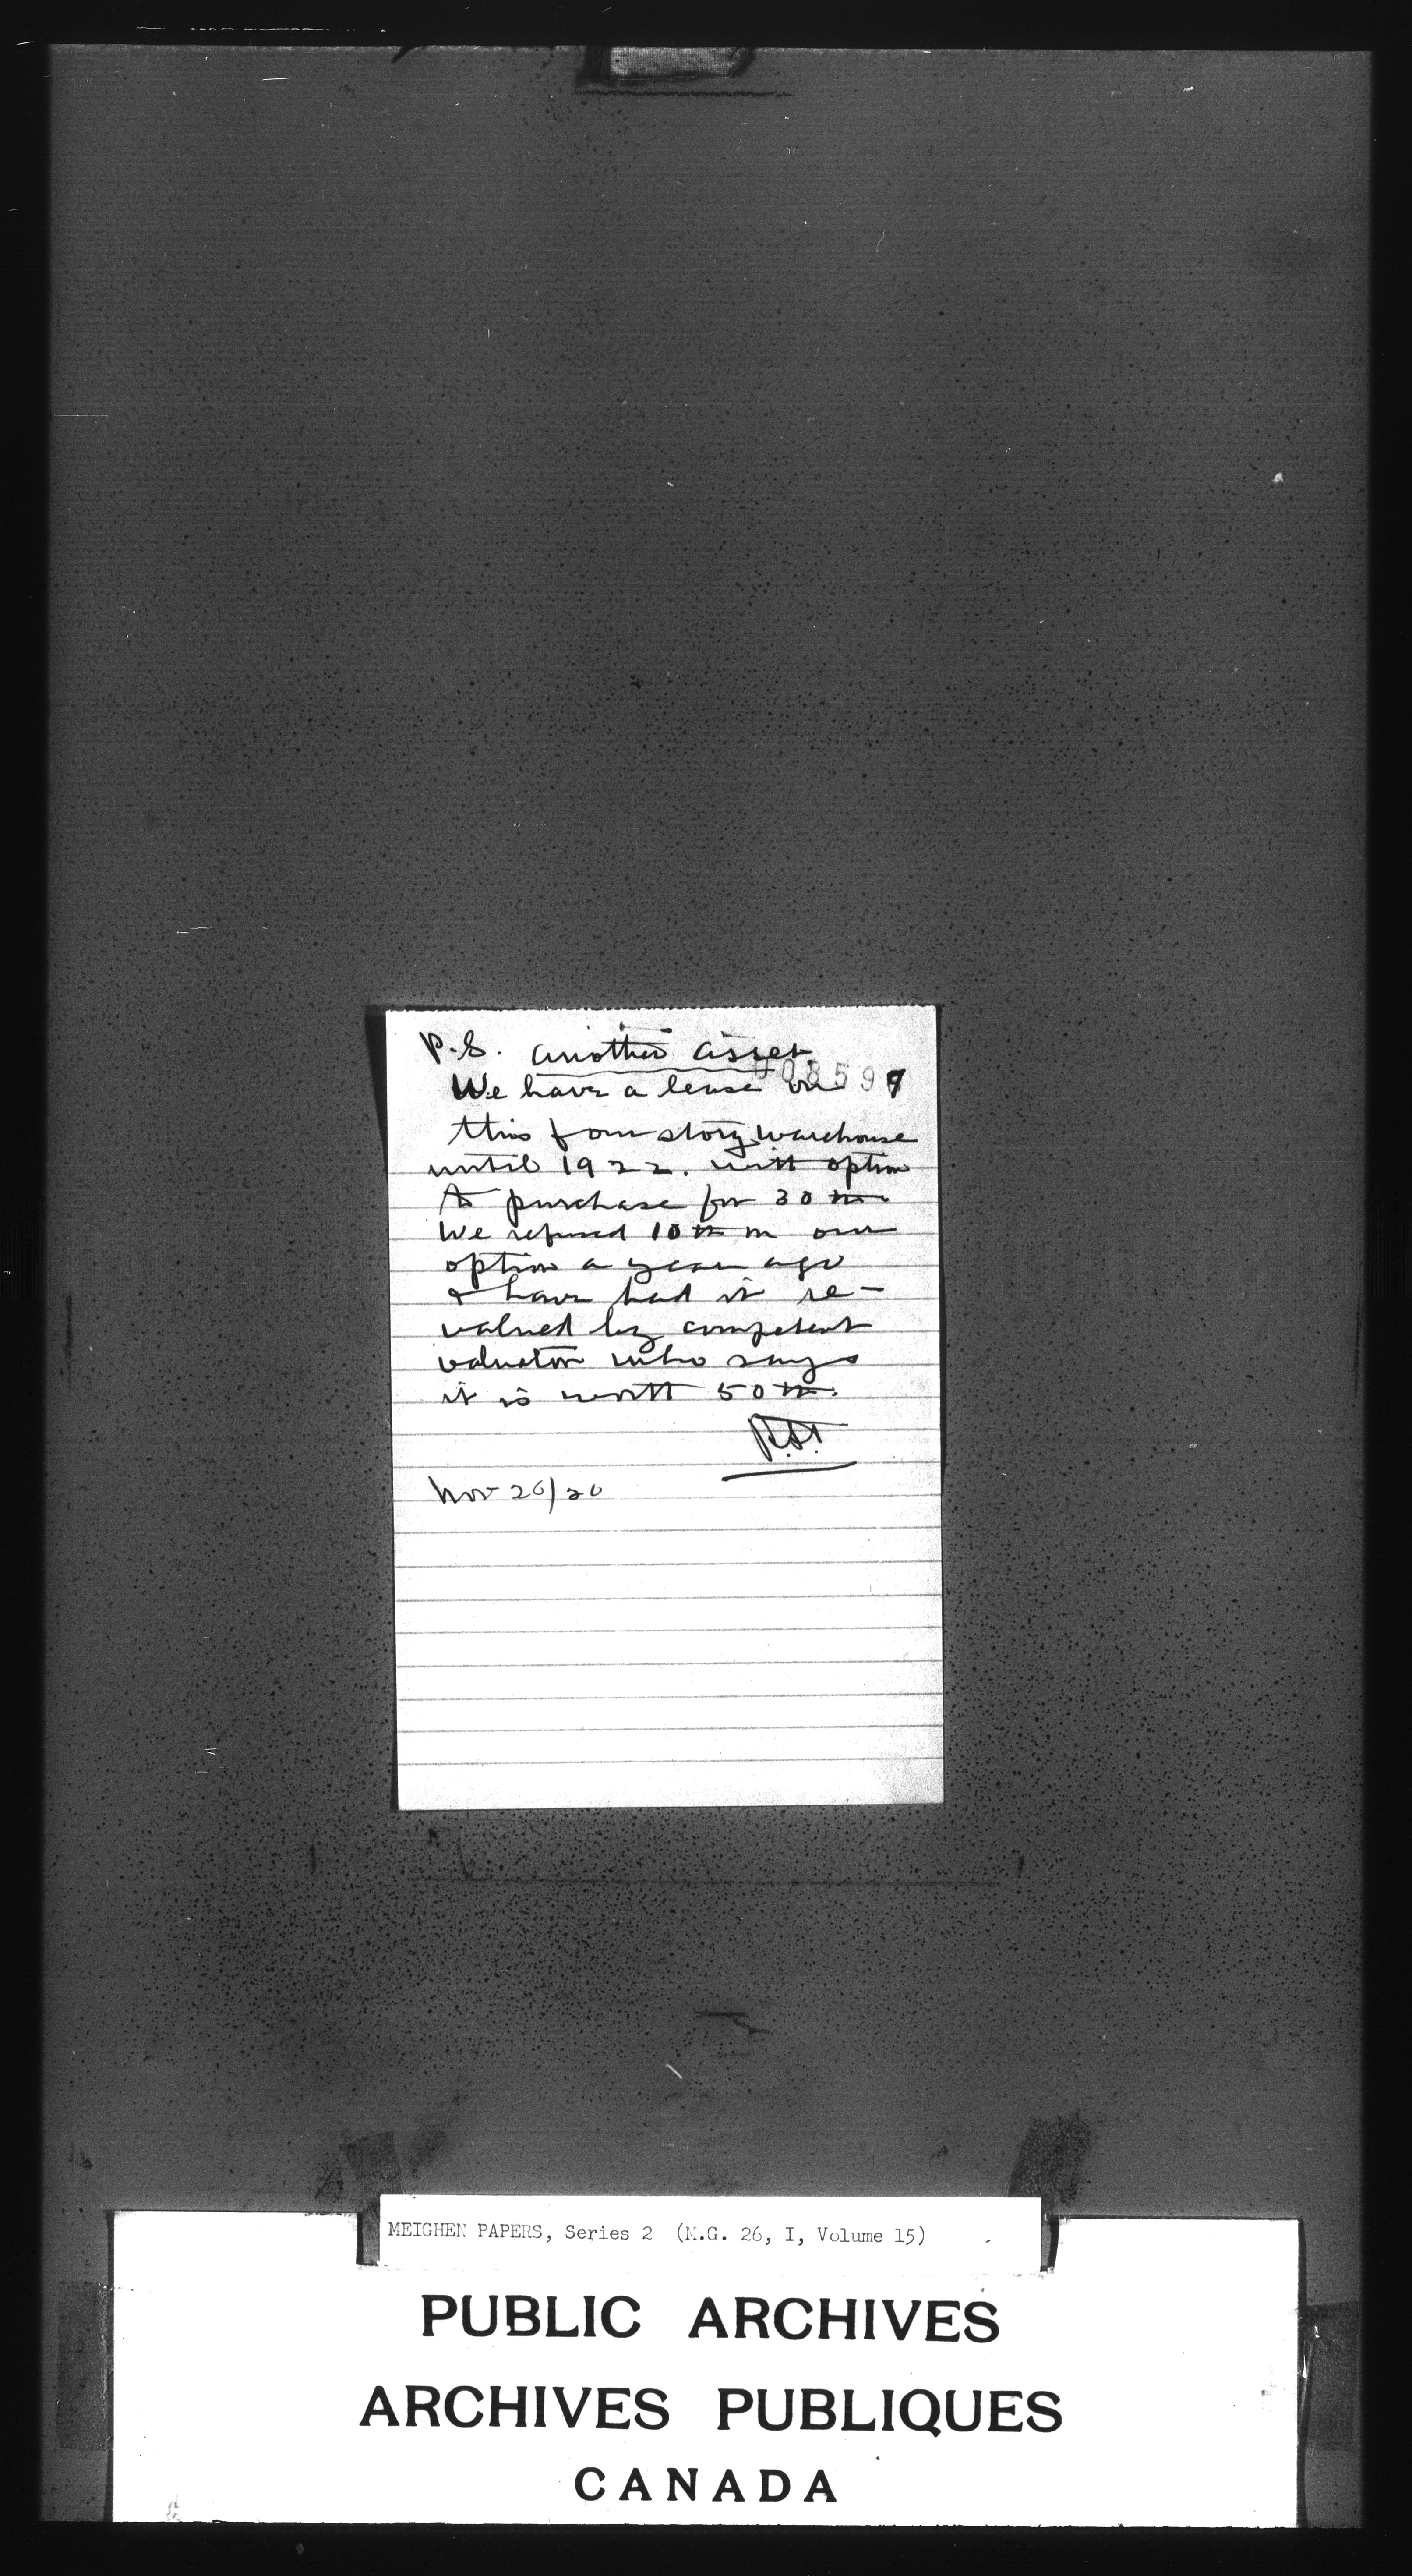 P.S. another asset.
008599
We have a lease on
this four story warehouse
until 1922. with option
to purchase for 30 m.
We refused 10 m on our
option a year ago
& have had it re-
valued by competent
valuator who says
it is worth 50 m.
Nov 26/20
MEIGHEN PAPERS, Series 2 (M.G. 26, I, Volume 15)
PUBLIC ARCHIVES
ARCHIVES PUBLIQUES
CANADA